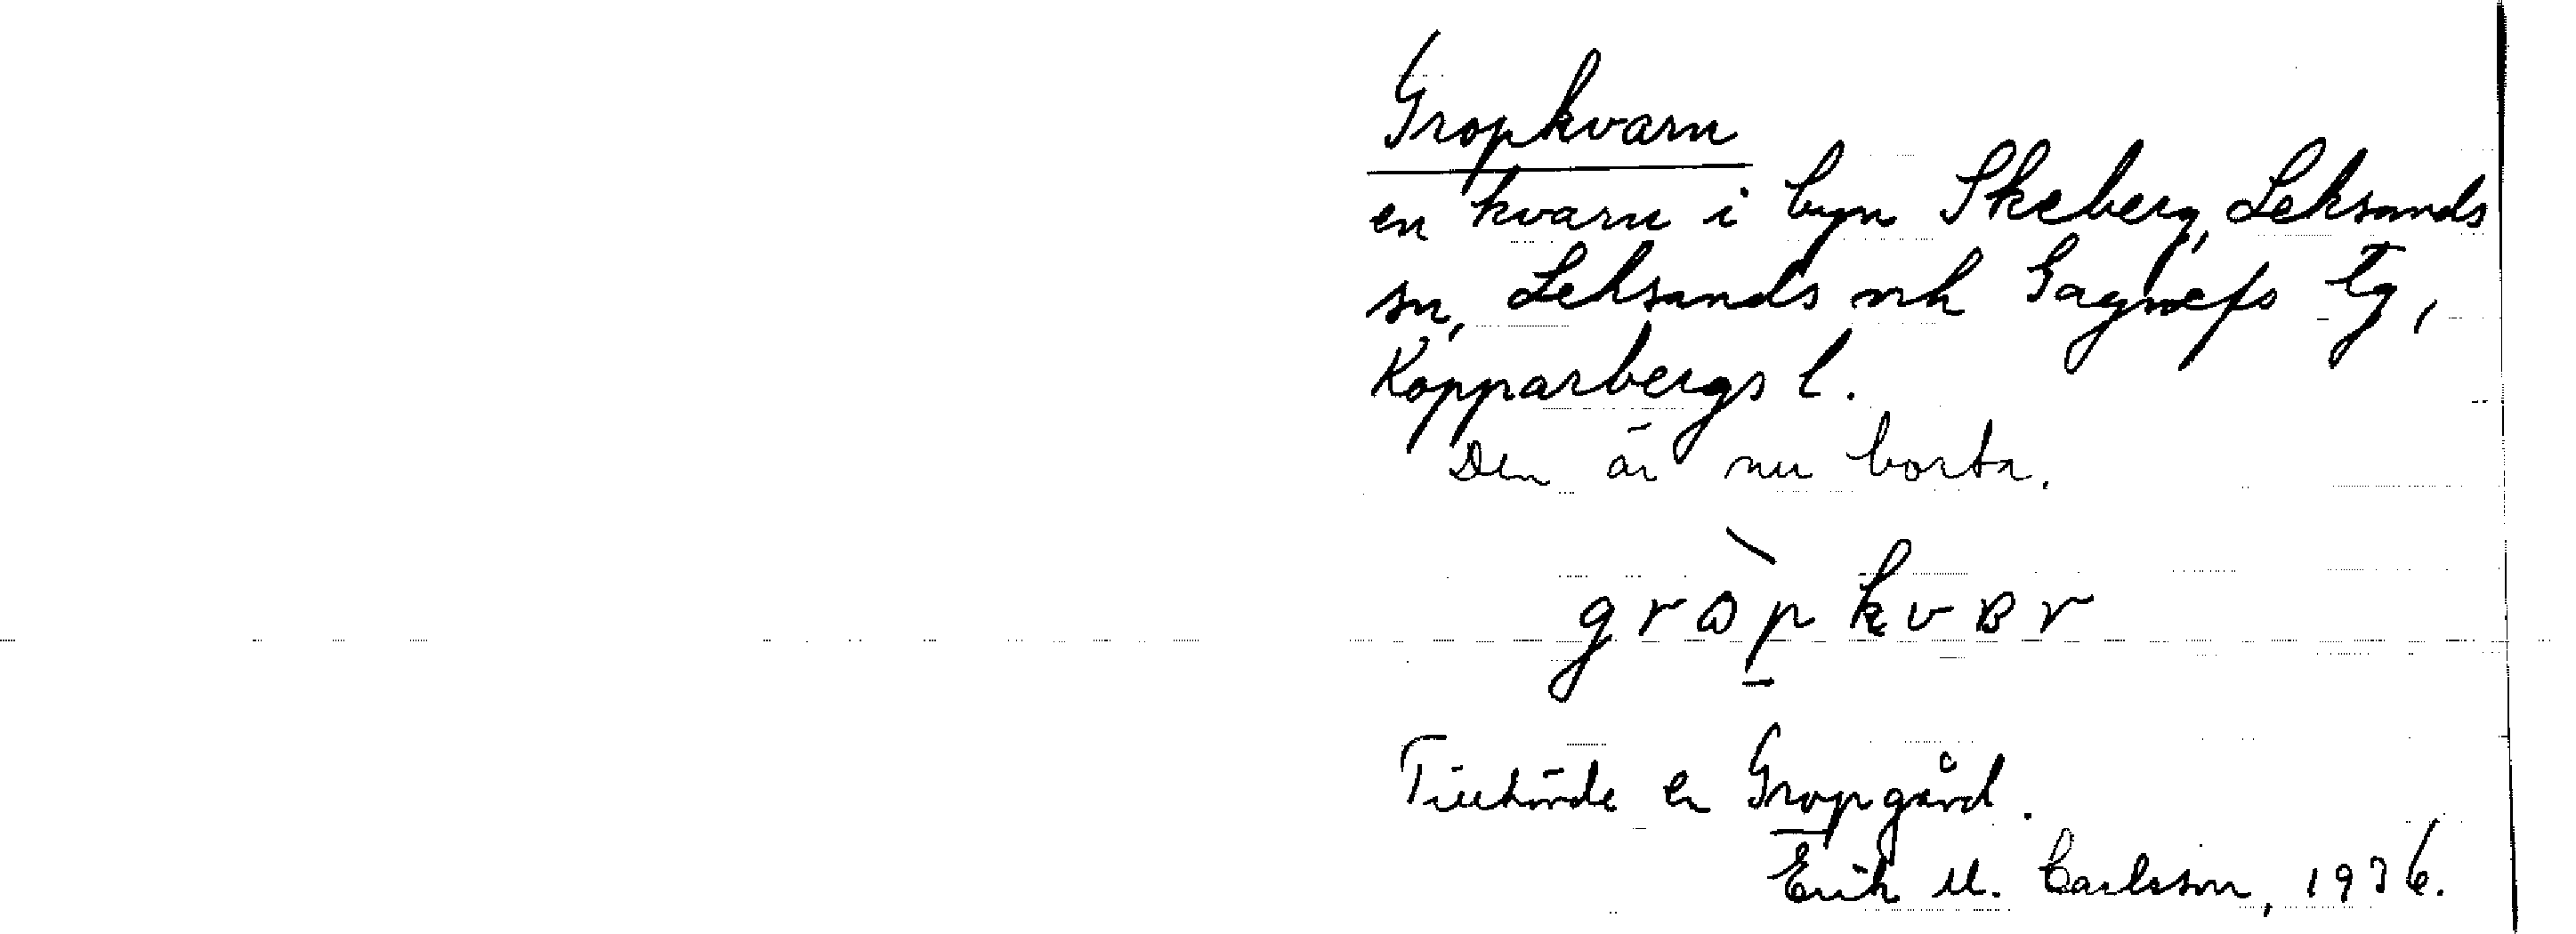 Gropkvarn
en kvarn i byn Skeberg, Leksands
sn, Leksands och Gagnefs tg,
Kopparbergs l.
Den är nu borta.
Tillhörde en Gropgård.
Erik M. Carlsson, 1936.